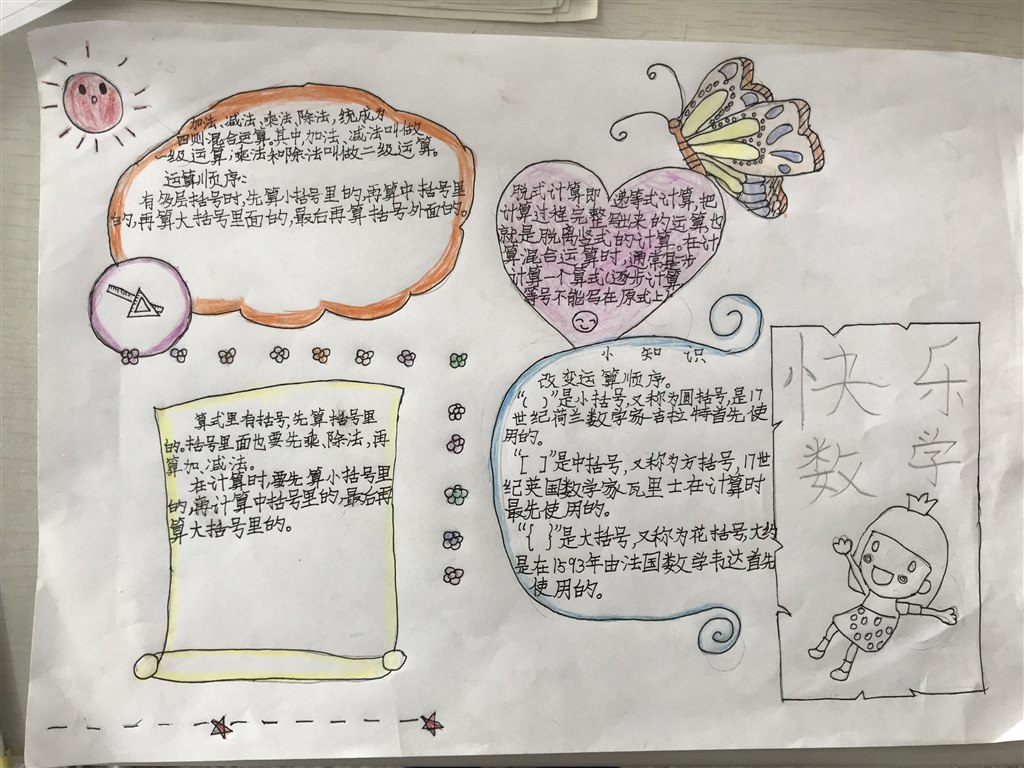 加法、减法、乘法、除法,统成为
四则混合运算。其中加法、减法叫做
一级运算;乘法和除法叫做二级运算。
运算顺序:
有多层括号时,先算小括号里的,再算中括号里
的,再算大括号里面的,最后再算括号外面的。
脱式计算即 递等式计算,把
计算过程完整写出来的运算,也
就是脱离竖式的计算。在计
算混合运算时,通常是一步
计算一个算式(逐步计算,
等号不能写在原式上)
小知识
改变运算顺序。
“( )”是小括号,又称为圆括号,是17
世纪荷兰数学家吉拉特首先使
用的。
“[ ]”是中括号,又称为方括号,17世
纪英国数学家瓦里士在计算时
最先使用的。
“{ }”是大括号,又称为花括号,大约
是在1593年由法国数学韦达首先
使用的。
算式里有括号,先算括号里
的。括号里面也要先乘、除法,再
算加、减法。
在计算时,要先算小括号里
的,再计算中括号里的,最后再
算大括号里的。
快乐
数学